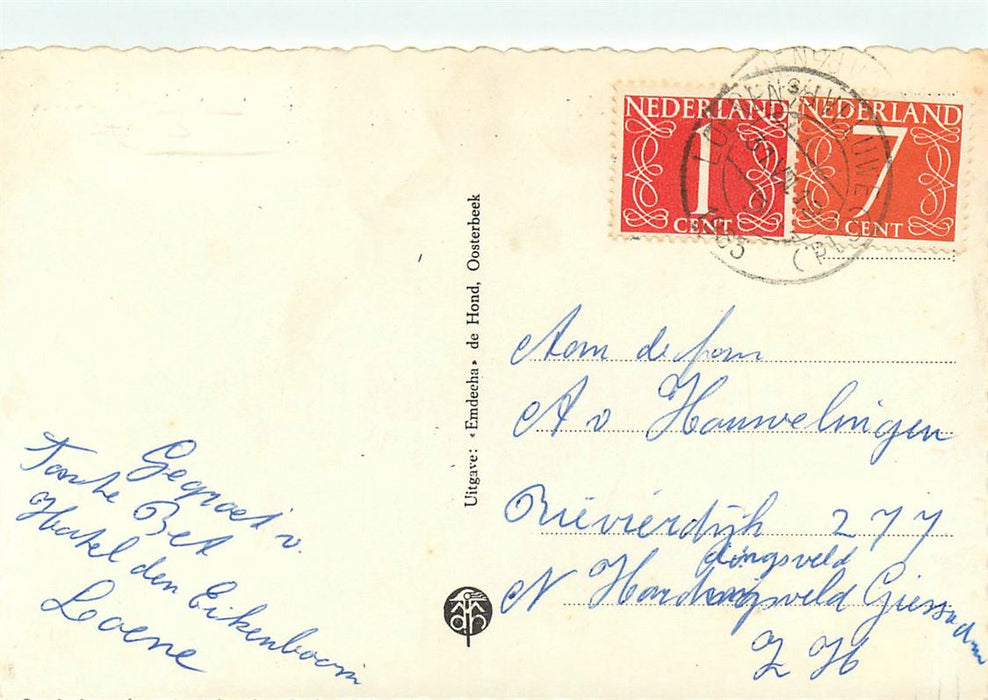 Gegroet v.
Tante Bet
Hotel den Eikenboom
Loene
Uitgave: «Emdecha» de Hond, Oosterbeek
NEDERLAND
1
CENT
NEDERLAND
7
CENT
1963
Aan de fam
A v Houwelingen
Riëvierdijk 277
dingsveld
N Hardingsveld Giessendam
Z H